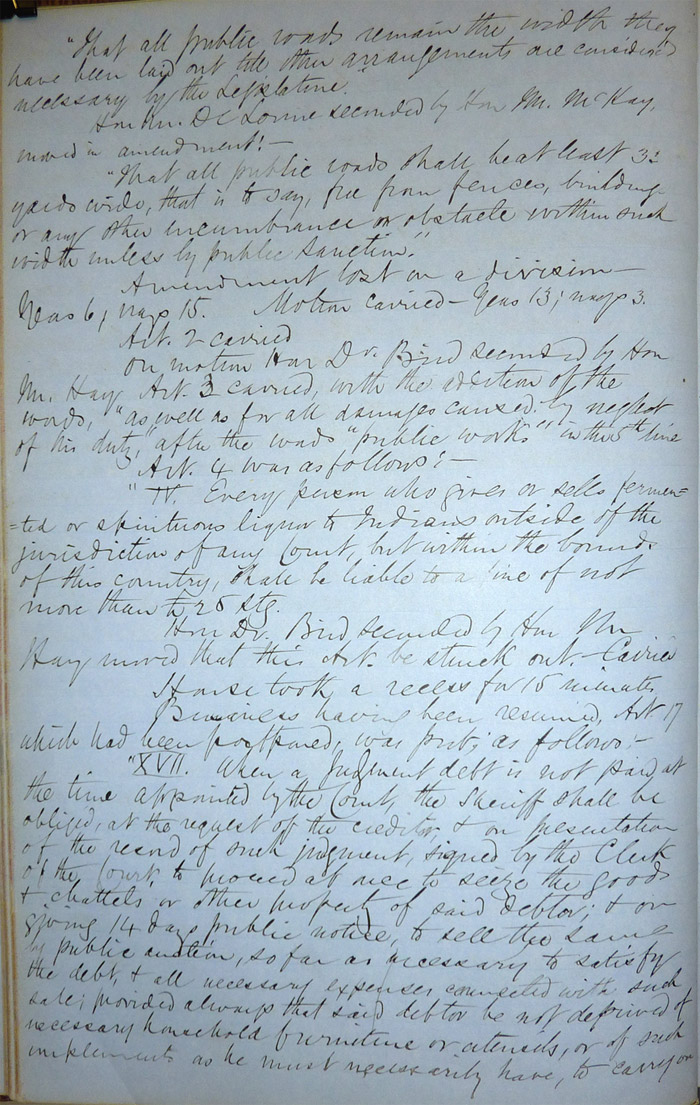 "That all public roads remain the width they
have been laid out till other arrangements are considered
necessary by the Legislature."
Hon Mr. De Lorme seconded by Hon Mr. McKay,
moved in amendment:—
"That all public roads shall be at least 32
yards wide, that is to say, free from fences, buildings
or any other incumbrance or obstacle within such
width unless by public sanction."
Amendment lost on a division—
Yeas 6; nays 15. Motion carried— Yeas 13; nays 3.
Art. 2 carried
On motion Hon Dr. Bird seconded by Hon
Mr. Hay Art. 3 carried, with the addition of the
words, "as well as for all damages caused by neglect
of his duty," after the words "public works" in the 5th line
Art. 4 was as follows:—
"IV. Every person who gives or sells fermen=
=ted or spirituous liquor to Indians outside of the
jurisdiction of any Court, but within the bounds
of this country, shall be liable to a fine of not
more than £25 stg.
Hon Dr. Bird seconded by Hon Mr
Hay moved that this Art. be struck out.—Carried
House took a recess for 15 minutes
Business having been resumed, Art. 17
which had been postponed, was put; as follows:—
"XVII. When a Judgment debt is not paid at
the time appointed by the Court, the Sheriff shall be
obliged, at the request of the creditor, & on presentation
of the record of such judgment, signed by the Clerk
of the Court, to proceed at once to seize the goods
& chattels or other property of said debtor; & on
giving 14 days public notice, to sell the same
by public auction, so far as necessary to satisfy
the debt, & all necessary expenses connected with such
sale; provided always that said debtor be not deprived of
necessary household furniture or utensils, or of such
implements as he must necessarily have, to carry on